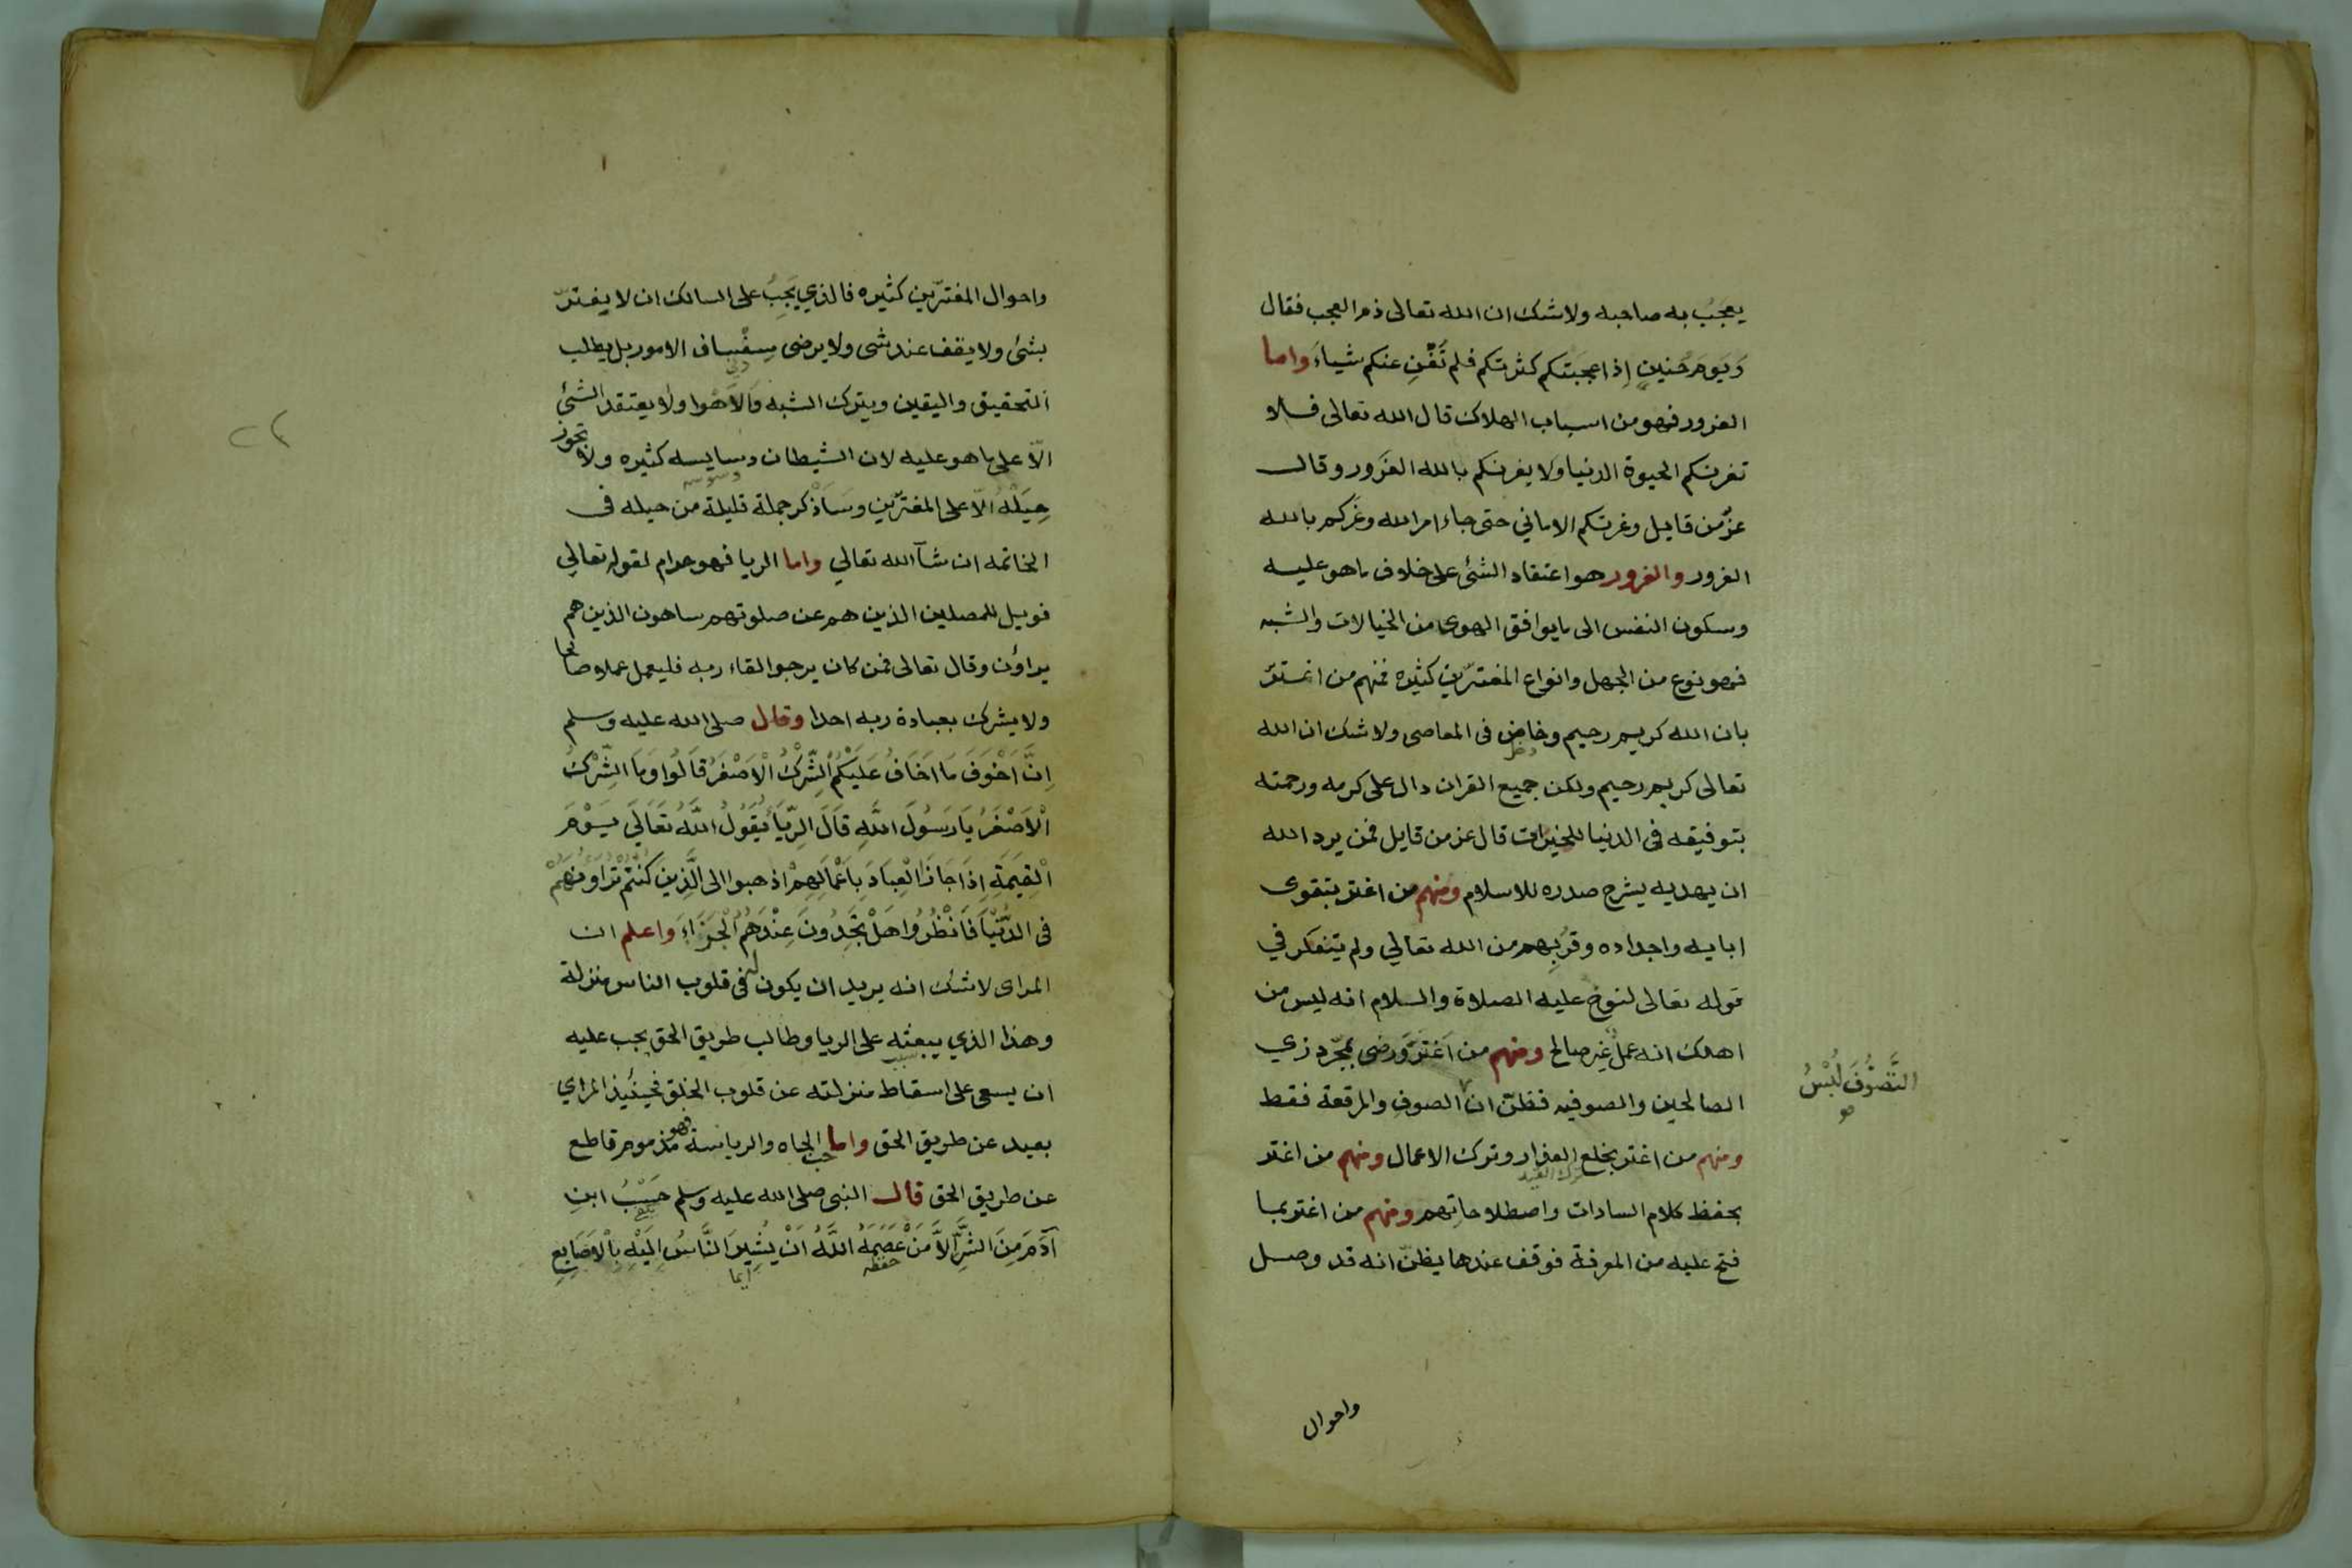 يعجَبُ به صاحبه ولا شك ان الله تعالى ذم العجب فقال
وَيَوم حُنينٍ إذ اعجبَتكم كثرتكم فلم تُغنِ عنكم شياء واما
الغرور فهو من اسباب الهلاك قال الله تعالى فلا
تغرنكم الحيوة الدنيا ولا يغرنكم بالله الغَرور وقال
عزّ من قايل وغرتكم الاماني حتى جاء امر الله وغركم بالله
الغرور والغرور هو اعتقاد الشئ على خلاف ما هو عليه
وسكون النفس الى ما يوافق الهوى من الخيالات والشبه
فهو نوع من الجهل وانواع المغترّين كثيره فمنهم من اغترّ
بان الله كريم رحيم وخاض فى المعاصى ولا شك ان الله
تعالى كريم رحيم ولكن جميع القران دال على كرمه ورحمته
بتوفيقه فى الدنيا للخيرات قال عز من قايل فمن يرد الله
ان يهديه يشرح صدره للاسلام ومنهم من اغتر بتقوى
ابايه واجداده وقربِهم من الله تعالي ولم يتفكر في
قوله تعالى لنوح عليه الصلاة والسلام انه ليس من
اهلك انه عملٌ غير صالح ومنهم من اَغتَرَّ ورضى بمجرّد زي
الصالحين والصوفيه فظنّ ان الصوف والمرقعة فقط
التَّصَوُّفَ لُبْسُ
صو
ومنهم من اغتر بخلع العذار وترك الاعمال ومنهم من اغتر
ترك القيد
بحفظ كلام السادات واصطلاحاتِهم ومنهم من اغتر بما
فتح عليه من المعرفة فوقف عندها يظنّ انه قد وصل
واحوال
واحوال المغترّين كثيره فالذي يَجِبُ على السالك ان لا يغترّ
بشئ ولا يقف عند شى ولا يرضى بسفساف الامور بل يطلب
التحقيق واليقين ويترك الشبه والاَهْوا ولا يعتقد الشئ
الّا على ما هو عليه لان الشيطان دسايسه كثيره ولا تجوز
وسوسه
حِيَلُهُ الّا على المغترّين وسَاَذْكر جملة قليلة من حيله فى
الخاتمه ان شآ الله تعالي واما الريا فهو حرام لقوله تعالي
فويل للمصلين الذين هم عن صلوتهم ساهون الذين هم
يراؤن وقال تعالى فمن كان يرجو القاء ربه فليعمل عملا صالحا
ولا يشرك بعبادة ربه احدا وقال صلى الله عليه وسلم
اِنَّ اَخْوَفَ مَا اَخَافُ عَلَيْكُمُ الشِّرْكُ الْاَصْغَرُ قَالُوا وَمَا الشِّرْكُ
الْاَصْغَرُ يَا رَسُولَ اللَّهِ قَالَ الرِّيَاُ يَقُولُ اللَّهُ تَعَالَى يَوْمَ
الْقِيَمَةِ اِذَا جَازَ الْعِبَادَ بِاَعْمَالِهِمْ اذهبوا الى الَّذِينَ كُنْتُمْ تُرَاؤُنَهُمْ
فى الدُّنْيَا فَانْظُرُوا هَلْ تَجِدُونَ عِنْدَهُمُ الْجَزَاءَ واعلم ان
المراى لا شك انه يريد ان يكون له فى قلوب الناس منزلة
وهذا الذي يبعثه على الريا وطالب طريق الحق يجب عليه
ان يسعى على اسقاط منزلته عن قلوب الخلق فحينئيذ المراي
بعيد عن طريق الحق واما حب الجاه والرياسة فهو مذموم قاطع
عن طريق الحق قال النبى صلى الله عليه وسلم حَسْبُ ابنِ
آدَمَ مِنَ الشَّرِّ اِلَّا مَنْ عَصَمَهُ اللَّهُ اَنْ يُشِيرَ النَّاسُ اِلَيْهِ بِالْاَصَابِعِ
حفظه